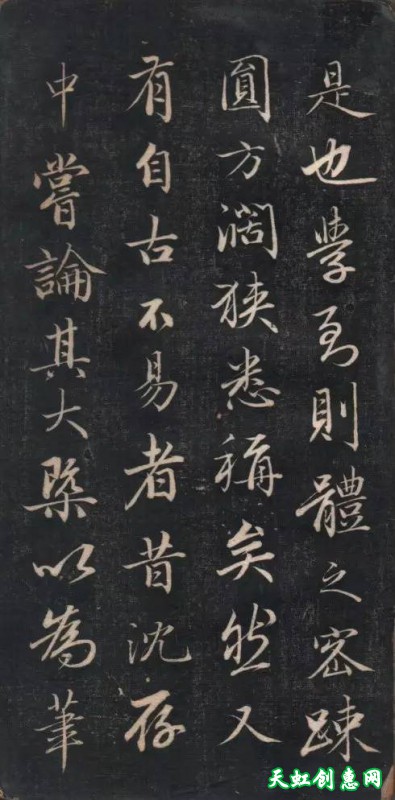 是也學至則體之密踈
圓方濶狹悉稱矣然又
有自古不易者昔沈存
中嘗論其大槩以為筆
天虹创惠网